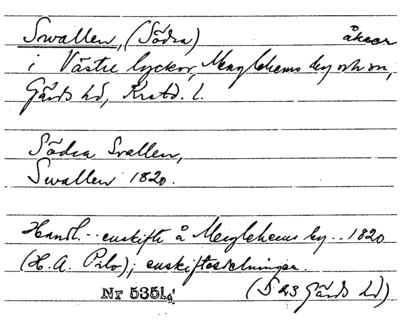 Swallen, (Södra) åkrar
i Västre lyckor, Menglehems by och sn,
Gärds hd, Krstd. l.
Södra Svallen,
Swallen 1820.
Handl. .. enskifte å Menglehems by .. 1820
(H. A. Pilo); enskiftesdelningar.
Nr 535 (S 23 Gärds hd)